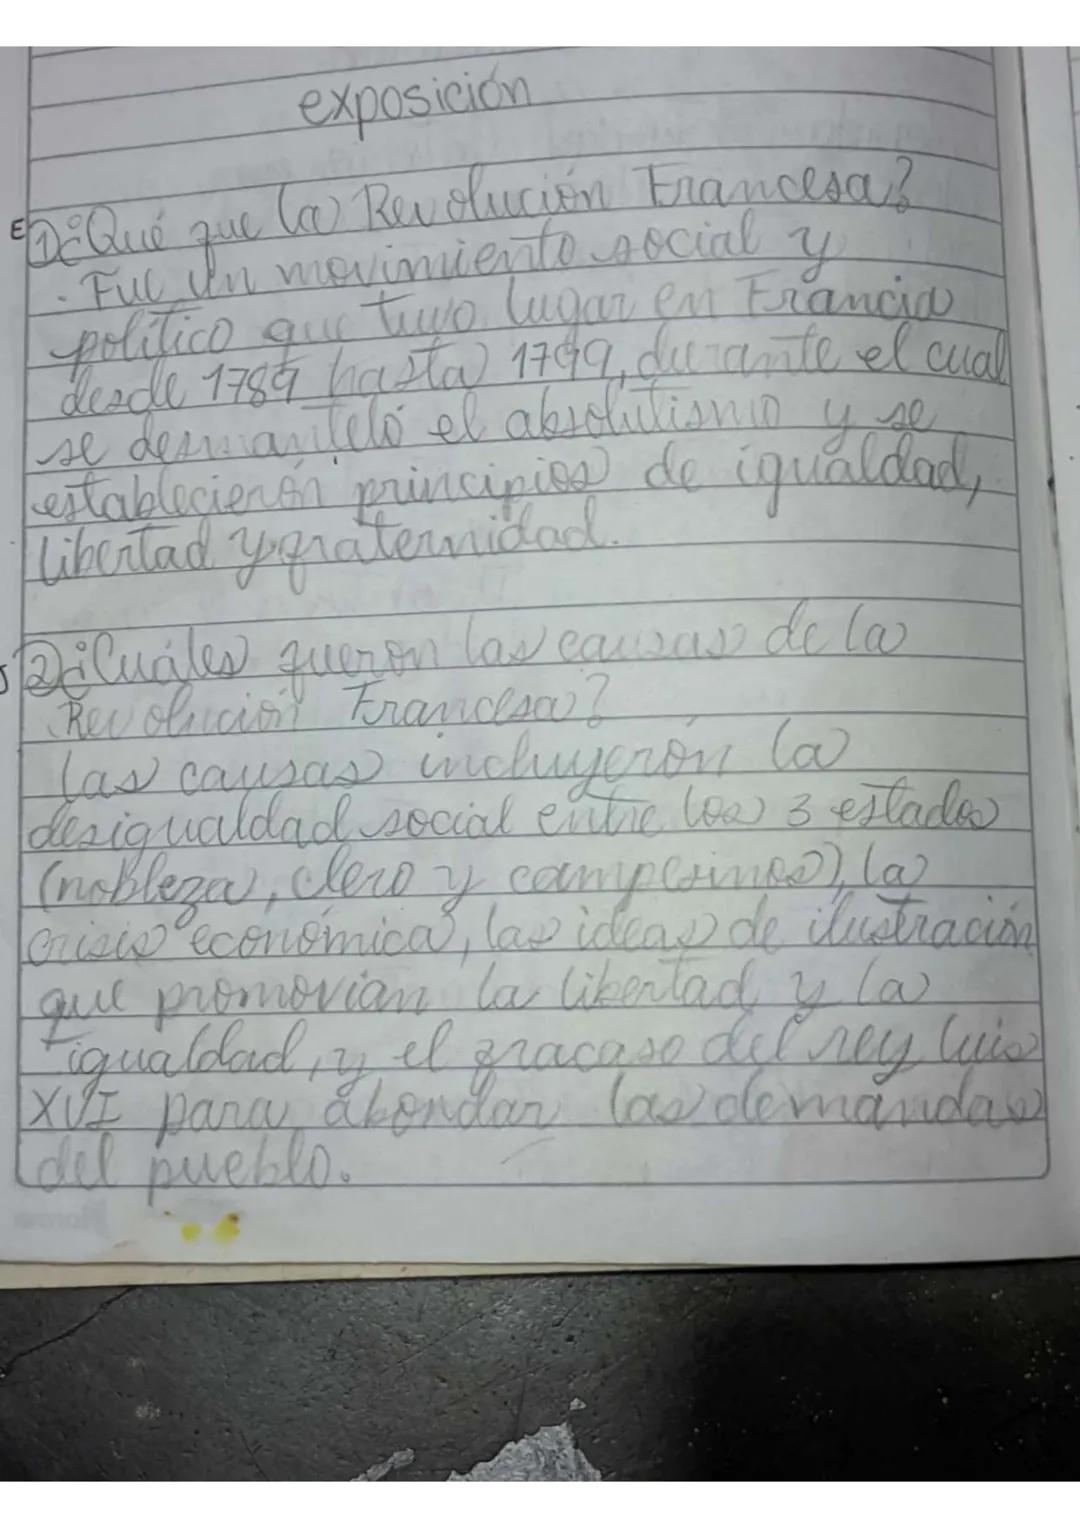 exposición
E① ¿Qué fue la Revolución Francesa?
. Fue Un movimiento social y
político que tuvo lugar en Francia
desde 1789 hasta 1799, durante el cual
se desmanteló el absolutismo y se
establecierón principios de igualdad,
libertad y fraternidad.
② ¿Cuáles fueron las causas de la
Revolución Francesa?
las causas incluyerón la
desigualdad social entre los 3 estados
(nobleza, clero y campesinos), la
crisis económica, las ideas de ilustración
que promovian la libertad y la
igualdad, y el fracaso del rey luis
XVI para abordar las demandas
del pueblo.